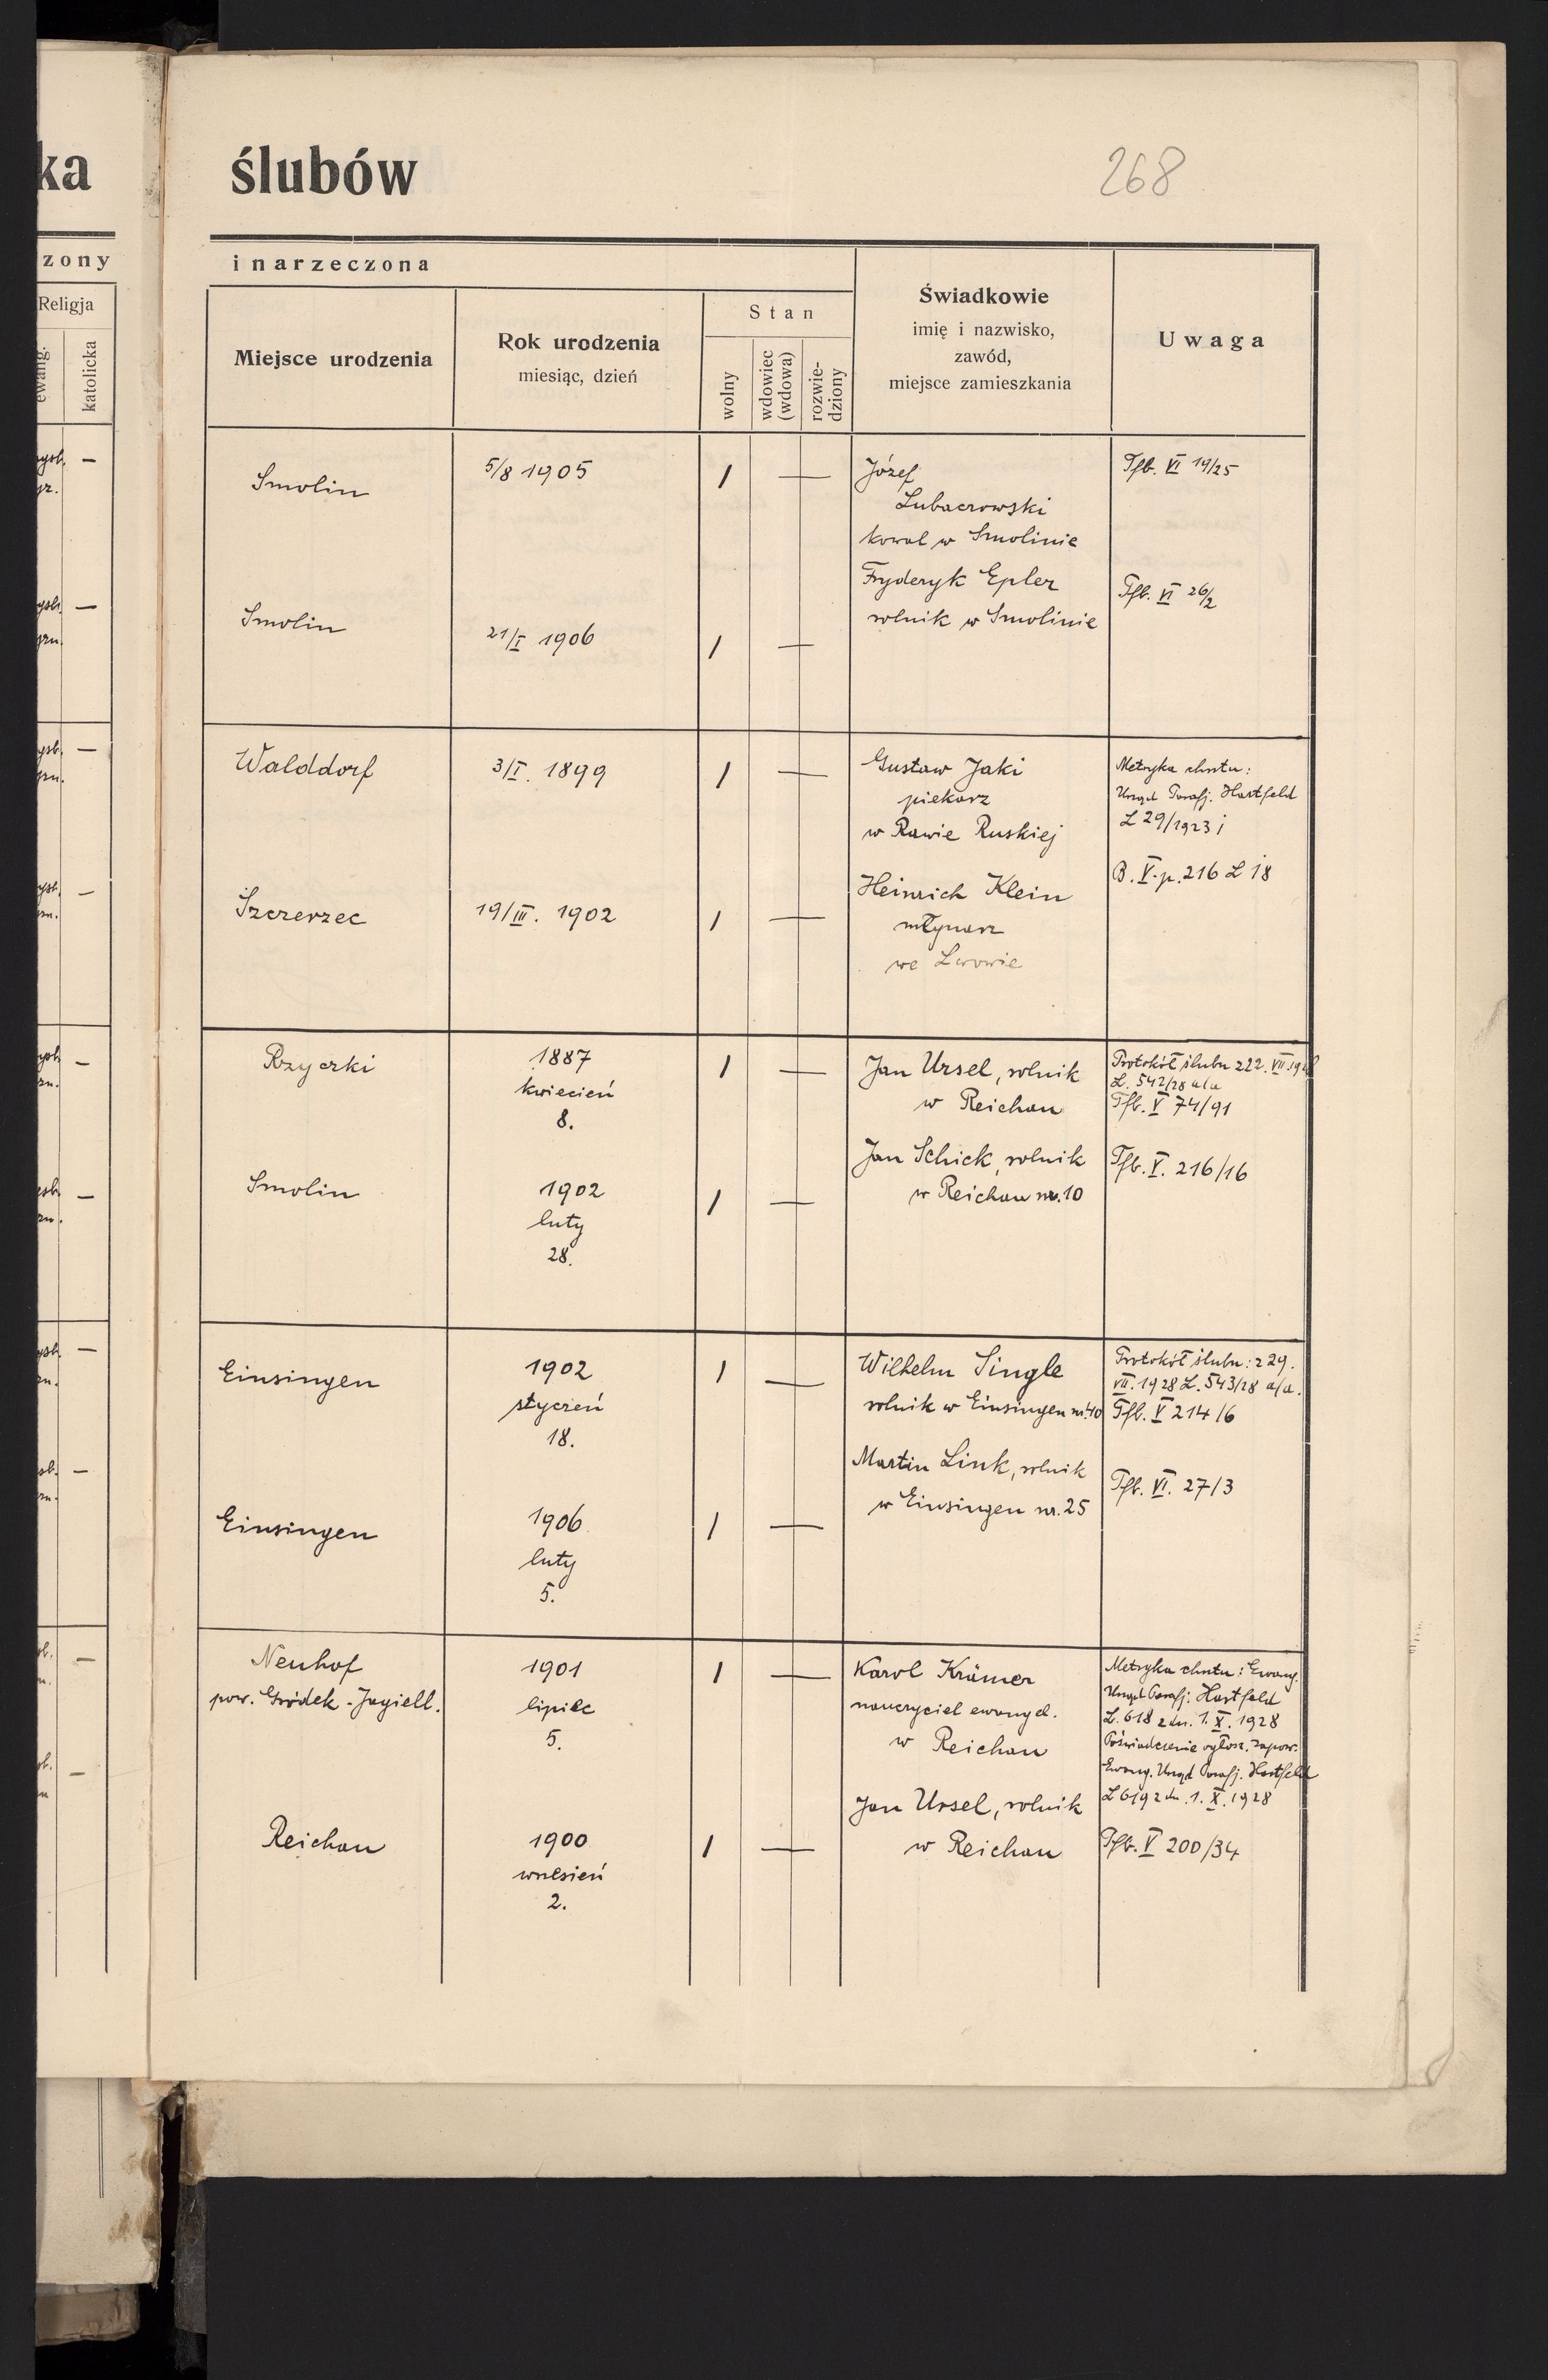 ka ślubów
268
zony
i narzeczona
Religja
ewang.
katolicka
Miejsce urodzenia
Rok urodzenia
miesiąc, dzień
Stan
wolny
wdowiec
(wdowa)
rozwie-
dziony
Świadkowie
imię i nazwisko,
zawód,
miejsce zamieszkania
Uwaga
Smolin
5/8 1905
1 —
Józef
Lubaczowski
kowal w Smolinie
Tfb. VI 19/25
Smolin
21/I 1906
1 —
Fryderyk Epler
rolnik w Smolinie
Tfb. VI 26/2
Walddorf
3/I. 1899
1 —
Gustaw Jaki
piekarz
w Rawie Ruskiej
Metryka chrztu:
Urząd Parafj. Hartfeld
L 29/1923 i
Szczerzec
19/III. 1902
1 —
Heinrich Klein
młynarz
we Lwowie
B. V. p. 216 L 18
Rzyczki
1887
kwiecień
8.
1 —
Jan Ursel, rolnik
w Reichau
Protokół ślubu z 22. VII.
L. 542/28 a/a
Tfb. V 74/91
Smolin
1902
luty
28.
1 —
Jan Schick, rolnik
w Reichau nr. 10
Tfb. V. 216/16
Einsingen
1902
styczeń
18.
1 —
Wilhelm Single
rolnik w Einsingen nr. 40
Protokół ślubu: z 29.
VII. 1928 L. 543/28 a/a.
Tfb. V 214/6
Einsingen
1906
luty
5.
1 —
Martin Link, rolnik
w Einsingen nr. 25
Tfb. VI. 27/3
Neuhof
pow. Gródek-Jagiell.
1901
lipiec
5.
1 —
Karol Krämer
nauczyciel ewangel.
w Reichau
Metryka chrztu: Ewang.
Urząd Parafj. Hartfeld
L. 618 z dn. 1. X. 1928
Poświadczenie ogłosz. zapow.
Ewang. Urząd Parafj. Hartfeld
L 619 z dn. 1. X. 1928
Reichau
1900
wrzesień
2.
1 —
Jan Ursel, rolnik
w Reichau
Tfb. V 200/34